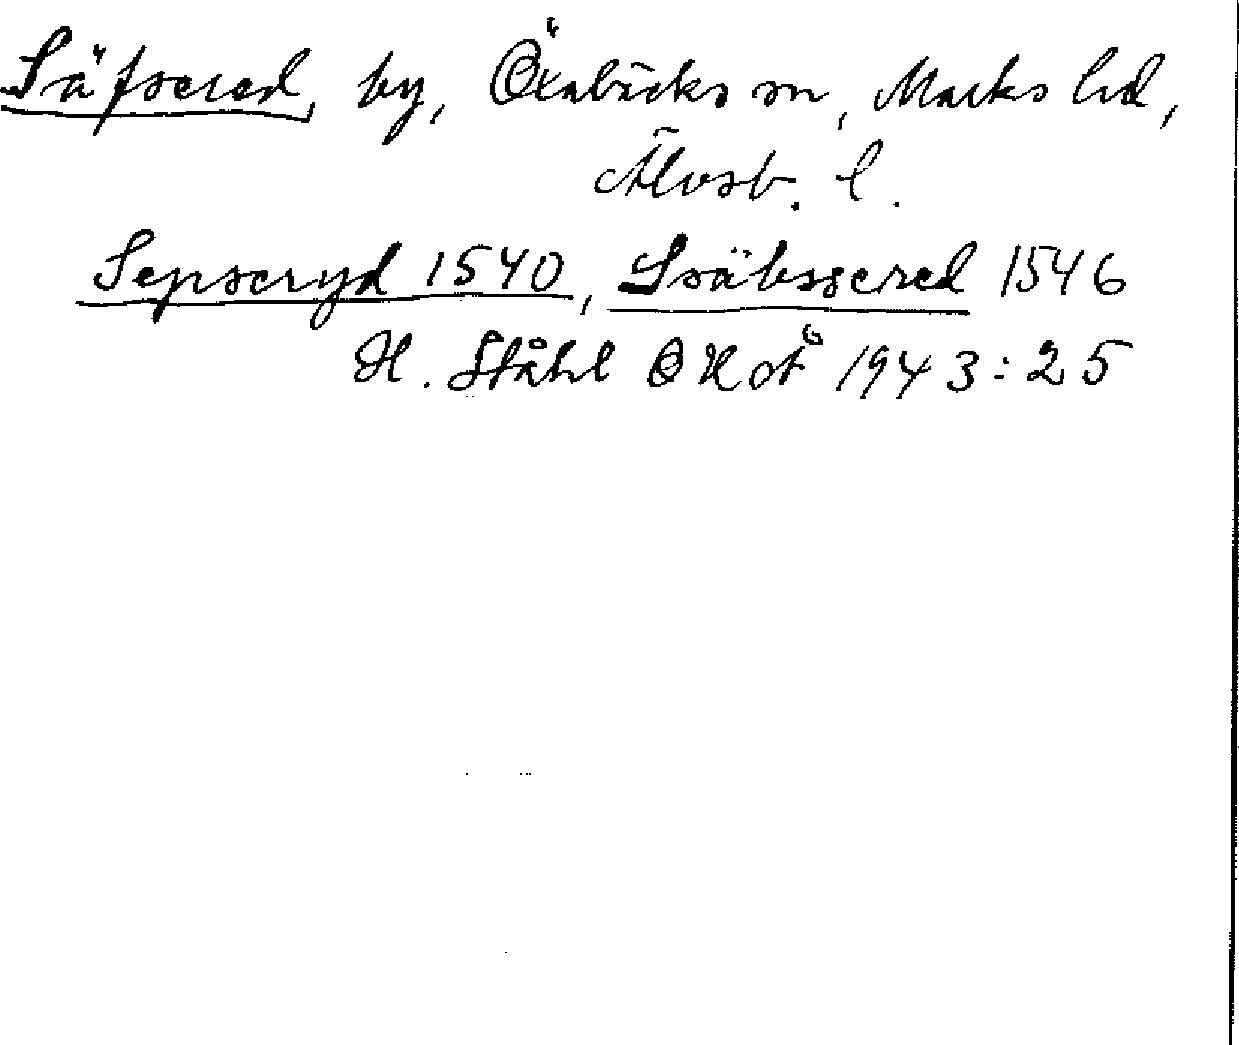 Säfsered, by, Öxnabäcks sn, Marks hd,
Älvsb. l.
Sepseryd 1540, Sväbssered 1546
H. Ståhl OKoÅ 1943:25